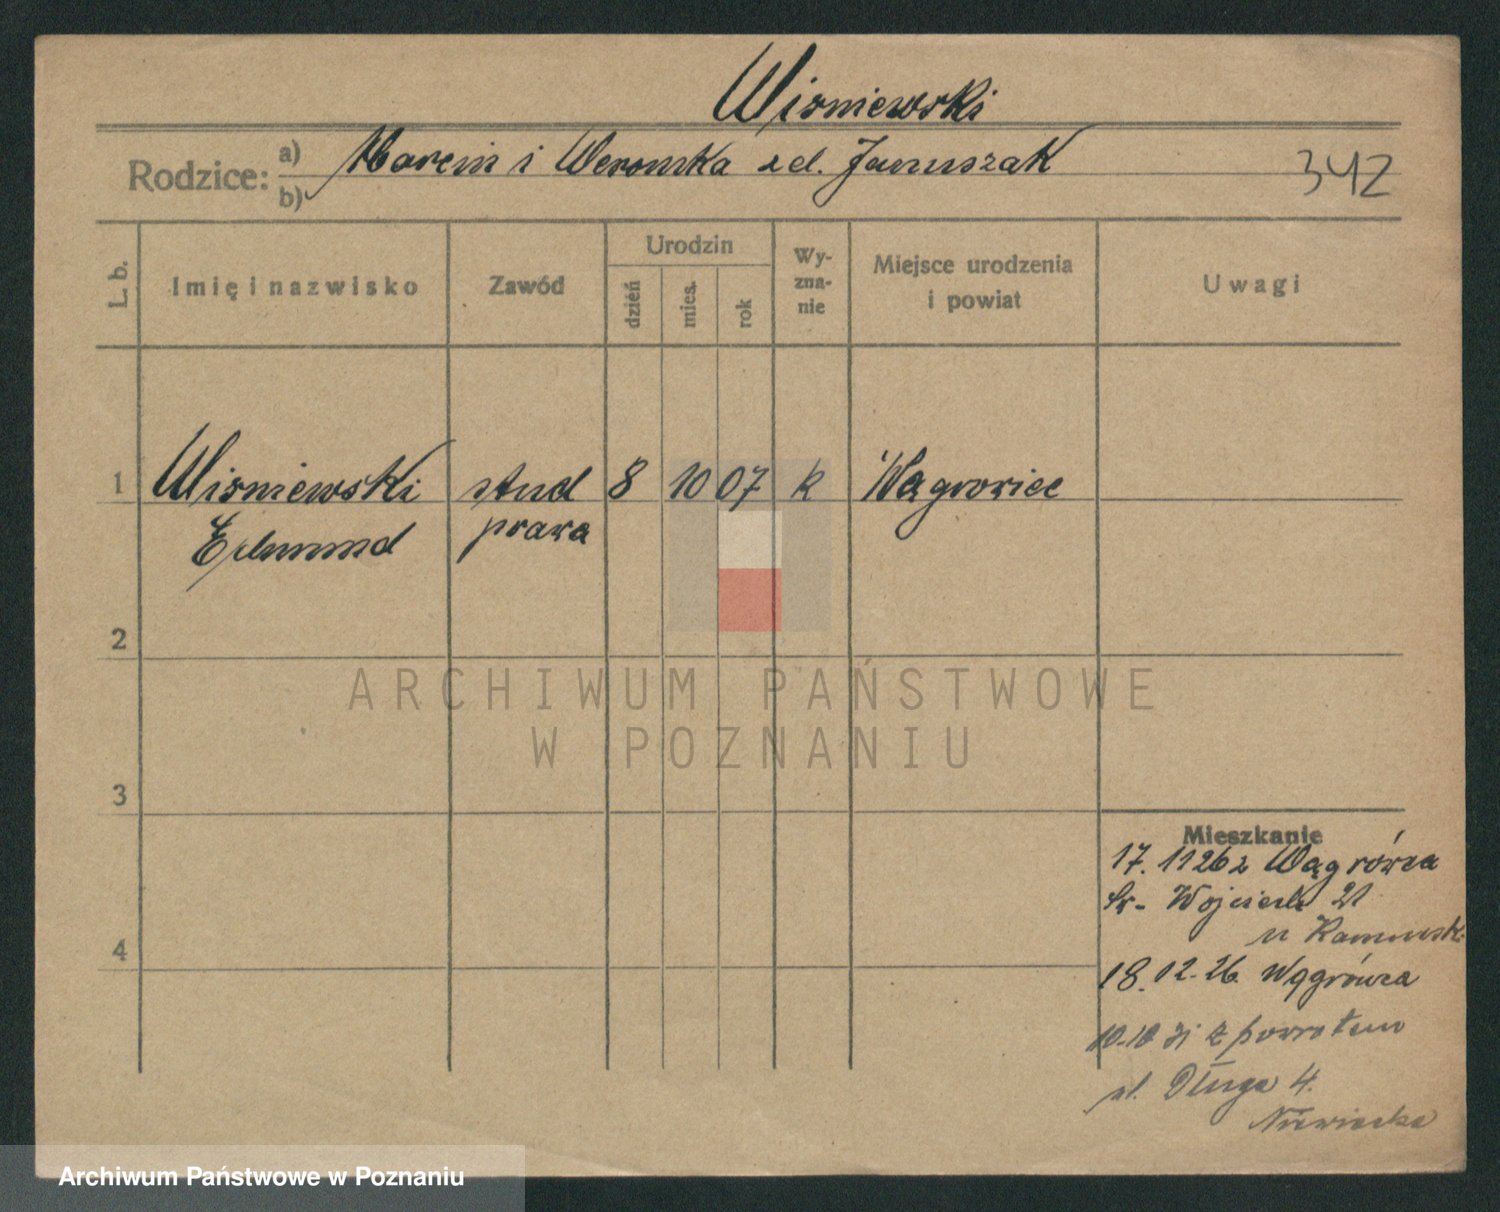 Wisniewski
Rodzice:
a) Marcin i Weronika zd. Januszak
b)
342
L. b.
Imię i nazwisko
Zawód
Urodzin
dzień
mies.
rok
Wy-
zna-
nie
Miejsce urodzenia
i powiat
Uwagi
1 Wisniewski stud 8 10 07 k Wągrowiec
Edmund prawa
2
ARCHIWUM PAŃSTWOWE
W POZNANIU
3
Mieszkanie
17. 11 26 z Wągrówca
Św. Wojciech 21
u Kaminsk.
4
18. 12. 26. Wągrówca
10.10 31 z powrotem
ul. Długa 4.
Archiwum Państwowe w Poznaniu